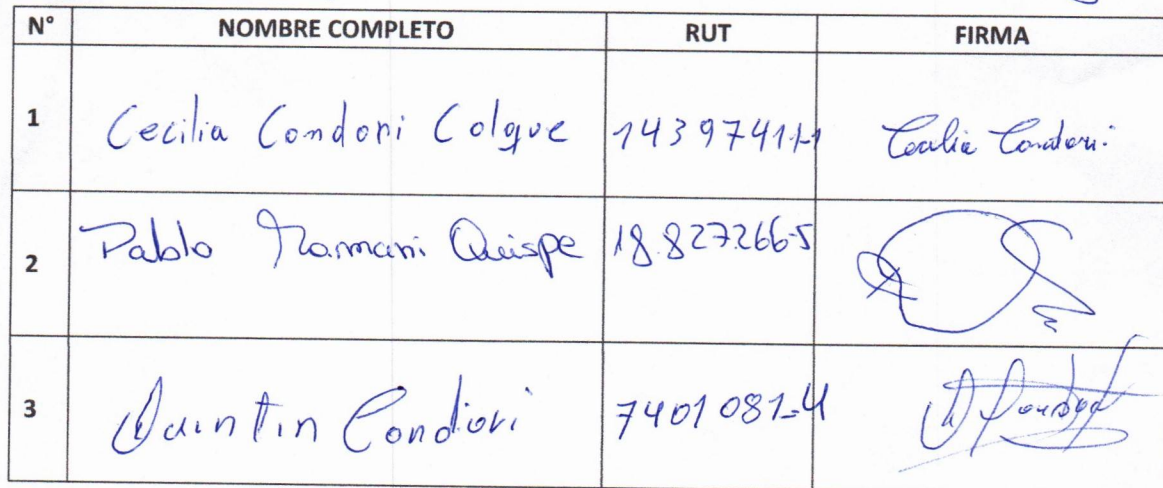 N° NOMBRE COMPLETO RUT FIRMA
1 Cecilia Condori Colque 14397411-1 Cecilia Condori
2 Pablo Mamani Quispe 18.827266-5
3 Quintin Condori 7401081-4